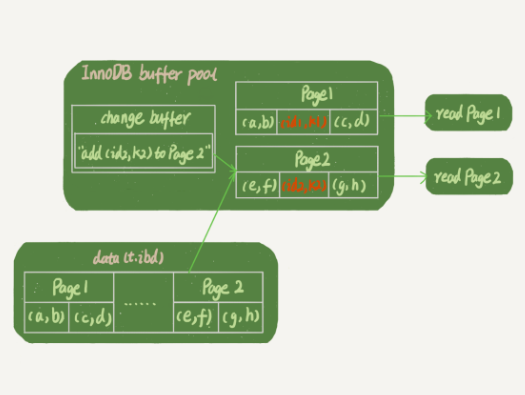 InnoDB buffer pool
change buffer
"add (id2,k2) to Page 2"
Page1
(a,b) (id1,k1) (c,d)
Page2
(e,f) (id2,k2) (g,h)
read Page 1
read Page 2
data (t.ibd)
Page1 ...... Page 2
(a,b) (c,d) (e,f) (g,h)